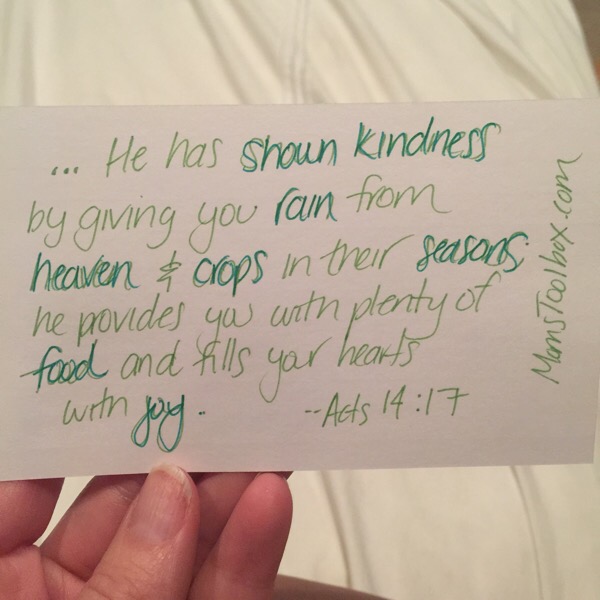 ... He has shown kindness
by giving you rain from
heaven & crops in their seasons;
he provides you with plenty of
food and fills your hearts
with joy.
--Acts 14:17
MomsToolbox.com